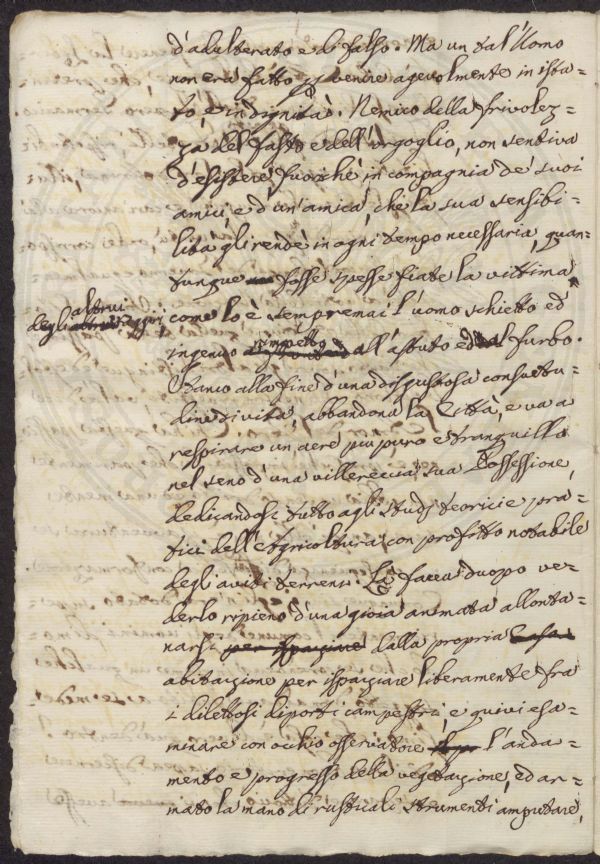 d'adulterato e di falso. Ma un tal'Uomo
non era fatto per venire agevolmente in ista-
to, e in dignità. Nemico della frivolez-
za del fasto e dell'orgoglio, non sentiva
d'esistere fuorché in compagnia de' suoi
amici, e d'un'amica, che la sua sensibi-
lità gli rendè in ogni tempo necessaria, quan-
tunque fosse spesse fiate la vittima
degli altrui
come lo è sempremai l'uomo schietto ed
ingenuo rimpetto all'astuto ed al furbo.
Stanco alla fine d'una disgustosa consuetu-
dine di vita, abbandona la Città, e va a
respirare un aere piu puro e tranquillo
nel seno d'una villereccia sua Possessione,
dedicandosi tutto agli studj teorici e pra-
tici dell'Agricoltura con profitto notabile
degli aviti terreni. Là facea duopo ve-
derlo ripieno d'una gioia animata allonta-
narsi per ispaziare dalla propria Casa
abitazione per ispaziare liberamente fra
i dilettosi diporti campestri, e quivi esa-
minare con occhio osservatore l'anda-
mento e progresso della vegetazione, ed ar-
mato la mano di rusticali strumenti amputare,